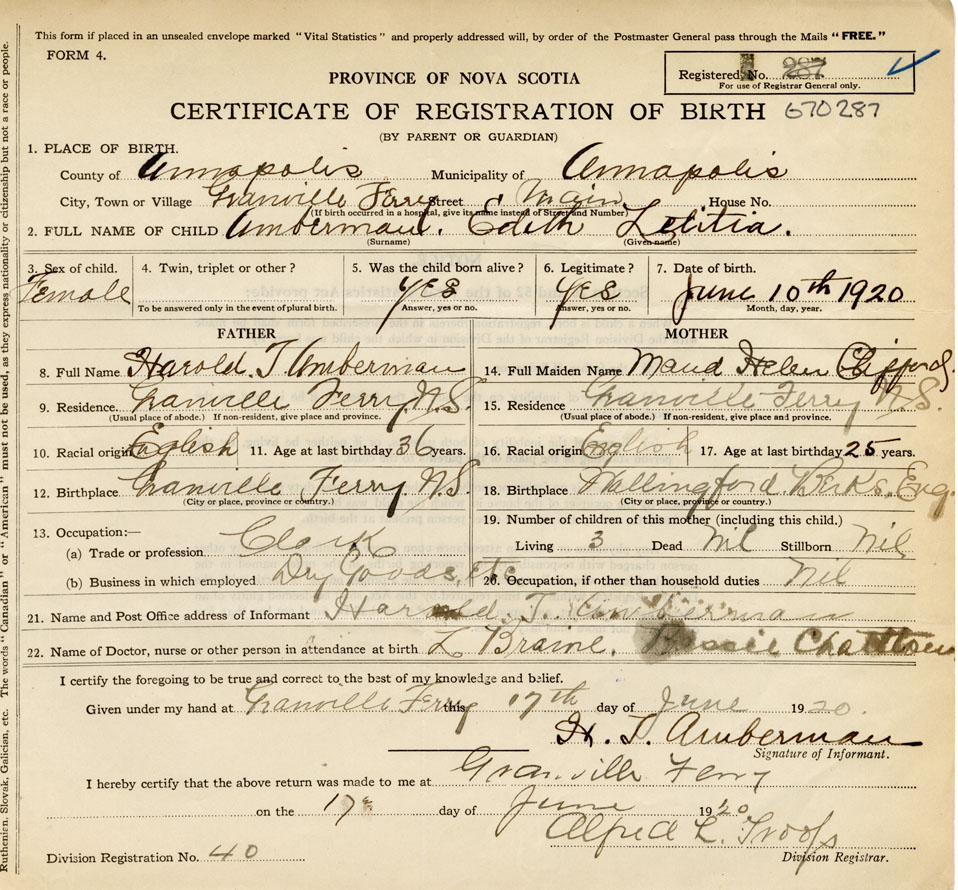 This form if placed in an unsealed envelope marked "Vital Statistics" and properly addressed will, by order of the Postmaster General pass through the Mails "FREE."
FORM 4.
Registered No. 287
For use of Registrar General only.
PROVINCE OF NOVA SCOTIA
CERTIFICATE OF REGISTRATION OF BIRTH 670287
(BY PARENT OR GUARDIAN)
1. PLACE OF BIRTH.
County of Annapolis Municipality of Annapolis
City, Town or Village Granville Ferry Street Main House No.
(If birth occurred in a hospital, give its name instead of Street and Number)
2. FULL NAME OF CHILD Amberman. Edith Letitia.
(Surname) (Given name)
3. Sex of child. 4. Twin, triplet or other? 5. Was the child born alive? 6. Legitimate? 7. Date of birth.
Female YES YES June 10th 1920
To be answered only in the event of plural birth. Answer, yes or no. Answer, yes or no. Month, day, year.
FATHER MOTHER
8. Full Name Harold. T Amberman 14. Full Maiden Name Maud Helen Clifford.
9. Residence. Granville Ferry, N.S. 15. Residence Granville Ferry N.S.
(Usual place of abode.) If non-resident, give place and province. (Usual place of abode.) If non-resident, give place and province.
10. Racial origin English 11. Age at last birthday 36 years. 16. Racial origin English 17. Age at last birthday 25 years.
12. Birthplace Granville Ferry. N.S. 18. Birthplace Wallingford Berks. Eng.
(City or place, province or country.) (City or place, province or country.)
13. Occupation:— 19. Number of children of this mother (including this child.)
(a) Trade or profession Clark Living 3 Dead Nil Stillborn Nil
(b) Business in which employed Dry Goods, etc 20. Occupation, if other than household duties Nil
21. Name and Post Office address of Informant Harold. T. Amberman
22. Name of Doctor, nurse or other person in attendance at birth L Braine. Bessie
I certify the foregoing to be true and correct to the best of my knowledge and belief.
Given under my hand at Granville Ferry this 17th day of June 1920.
H. T. Amberman
Signature of Informant.
I hereby certify that the above return was made to me at Granville Ferry
on the 17 day of June 1920
Alfred L. Troop
Division Registrar.
Division Registration No. 40
Ruthenien, Slovak, Galician, etc. The words "Canadian" or "American" must not be used, as they express nationality or citizenship but not a race or people.